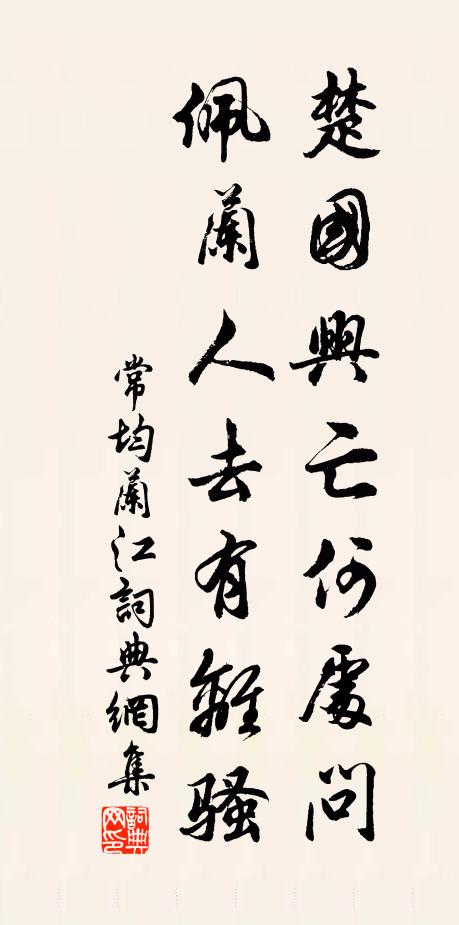 楚國興亡何處問
佩蘭人去有離騷
常均蘭江詞典網集
詞典网印